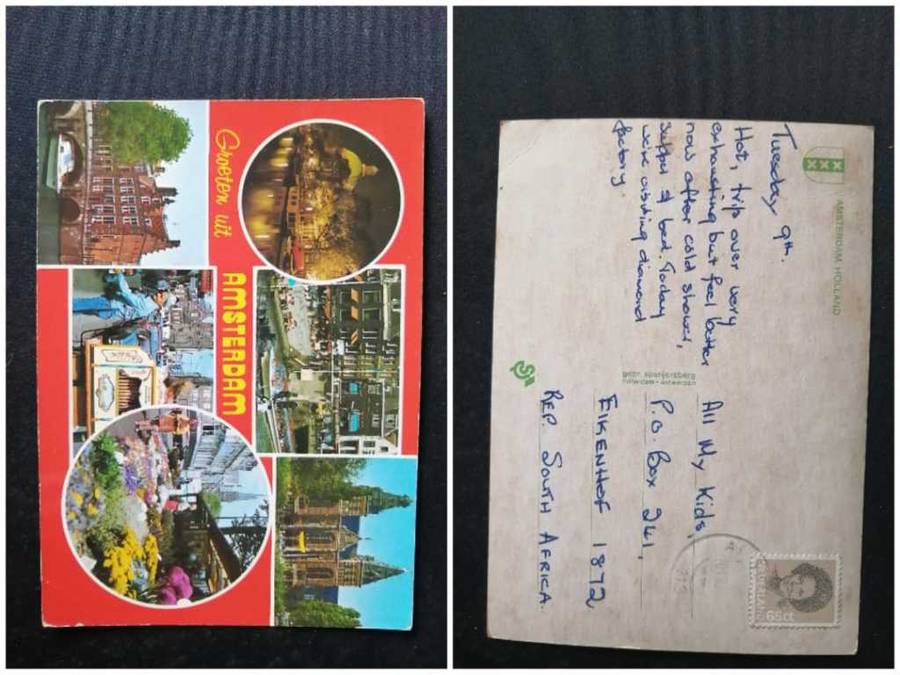 Groeten uit
AMSTERDAM
AMSTERDAM HOLLAND
Tuesday 9th.
Hot, trip over very
exhausting but feel better
now after cold shower,
supper & bed. Today
were visiting diamond
factory.
gebr. spanjersberg
rotterdam - antwerpen
All My Kids,
P.O. Box 241,
EIKENHOF 1872
REP. SOUTH AFRICA.
NEDERLAND
65ct